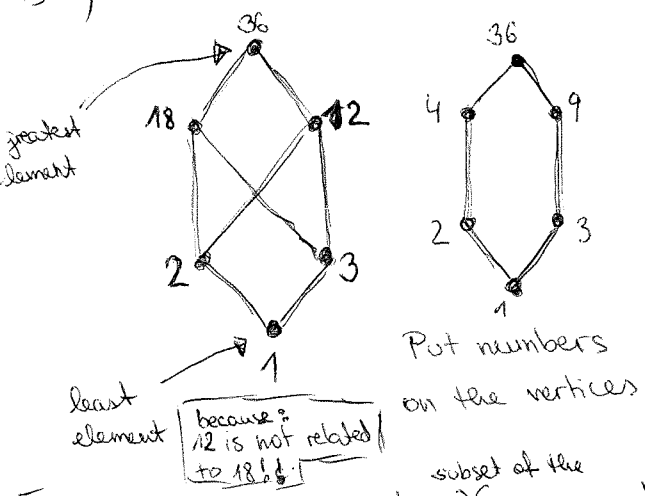 36
greatest
element
18
12
2
3
1
least
element
because:
12 is not related
to 18!!
36
4
9
2
3
1
Put numbers
on the vertices
subset of the